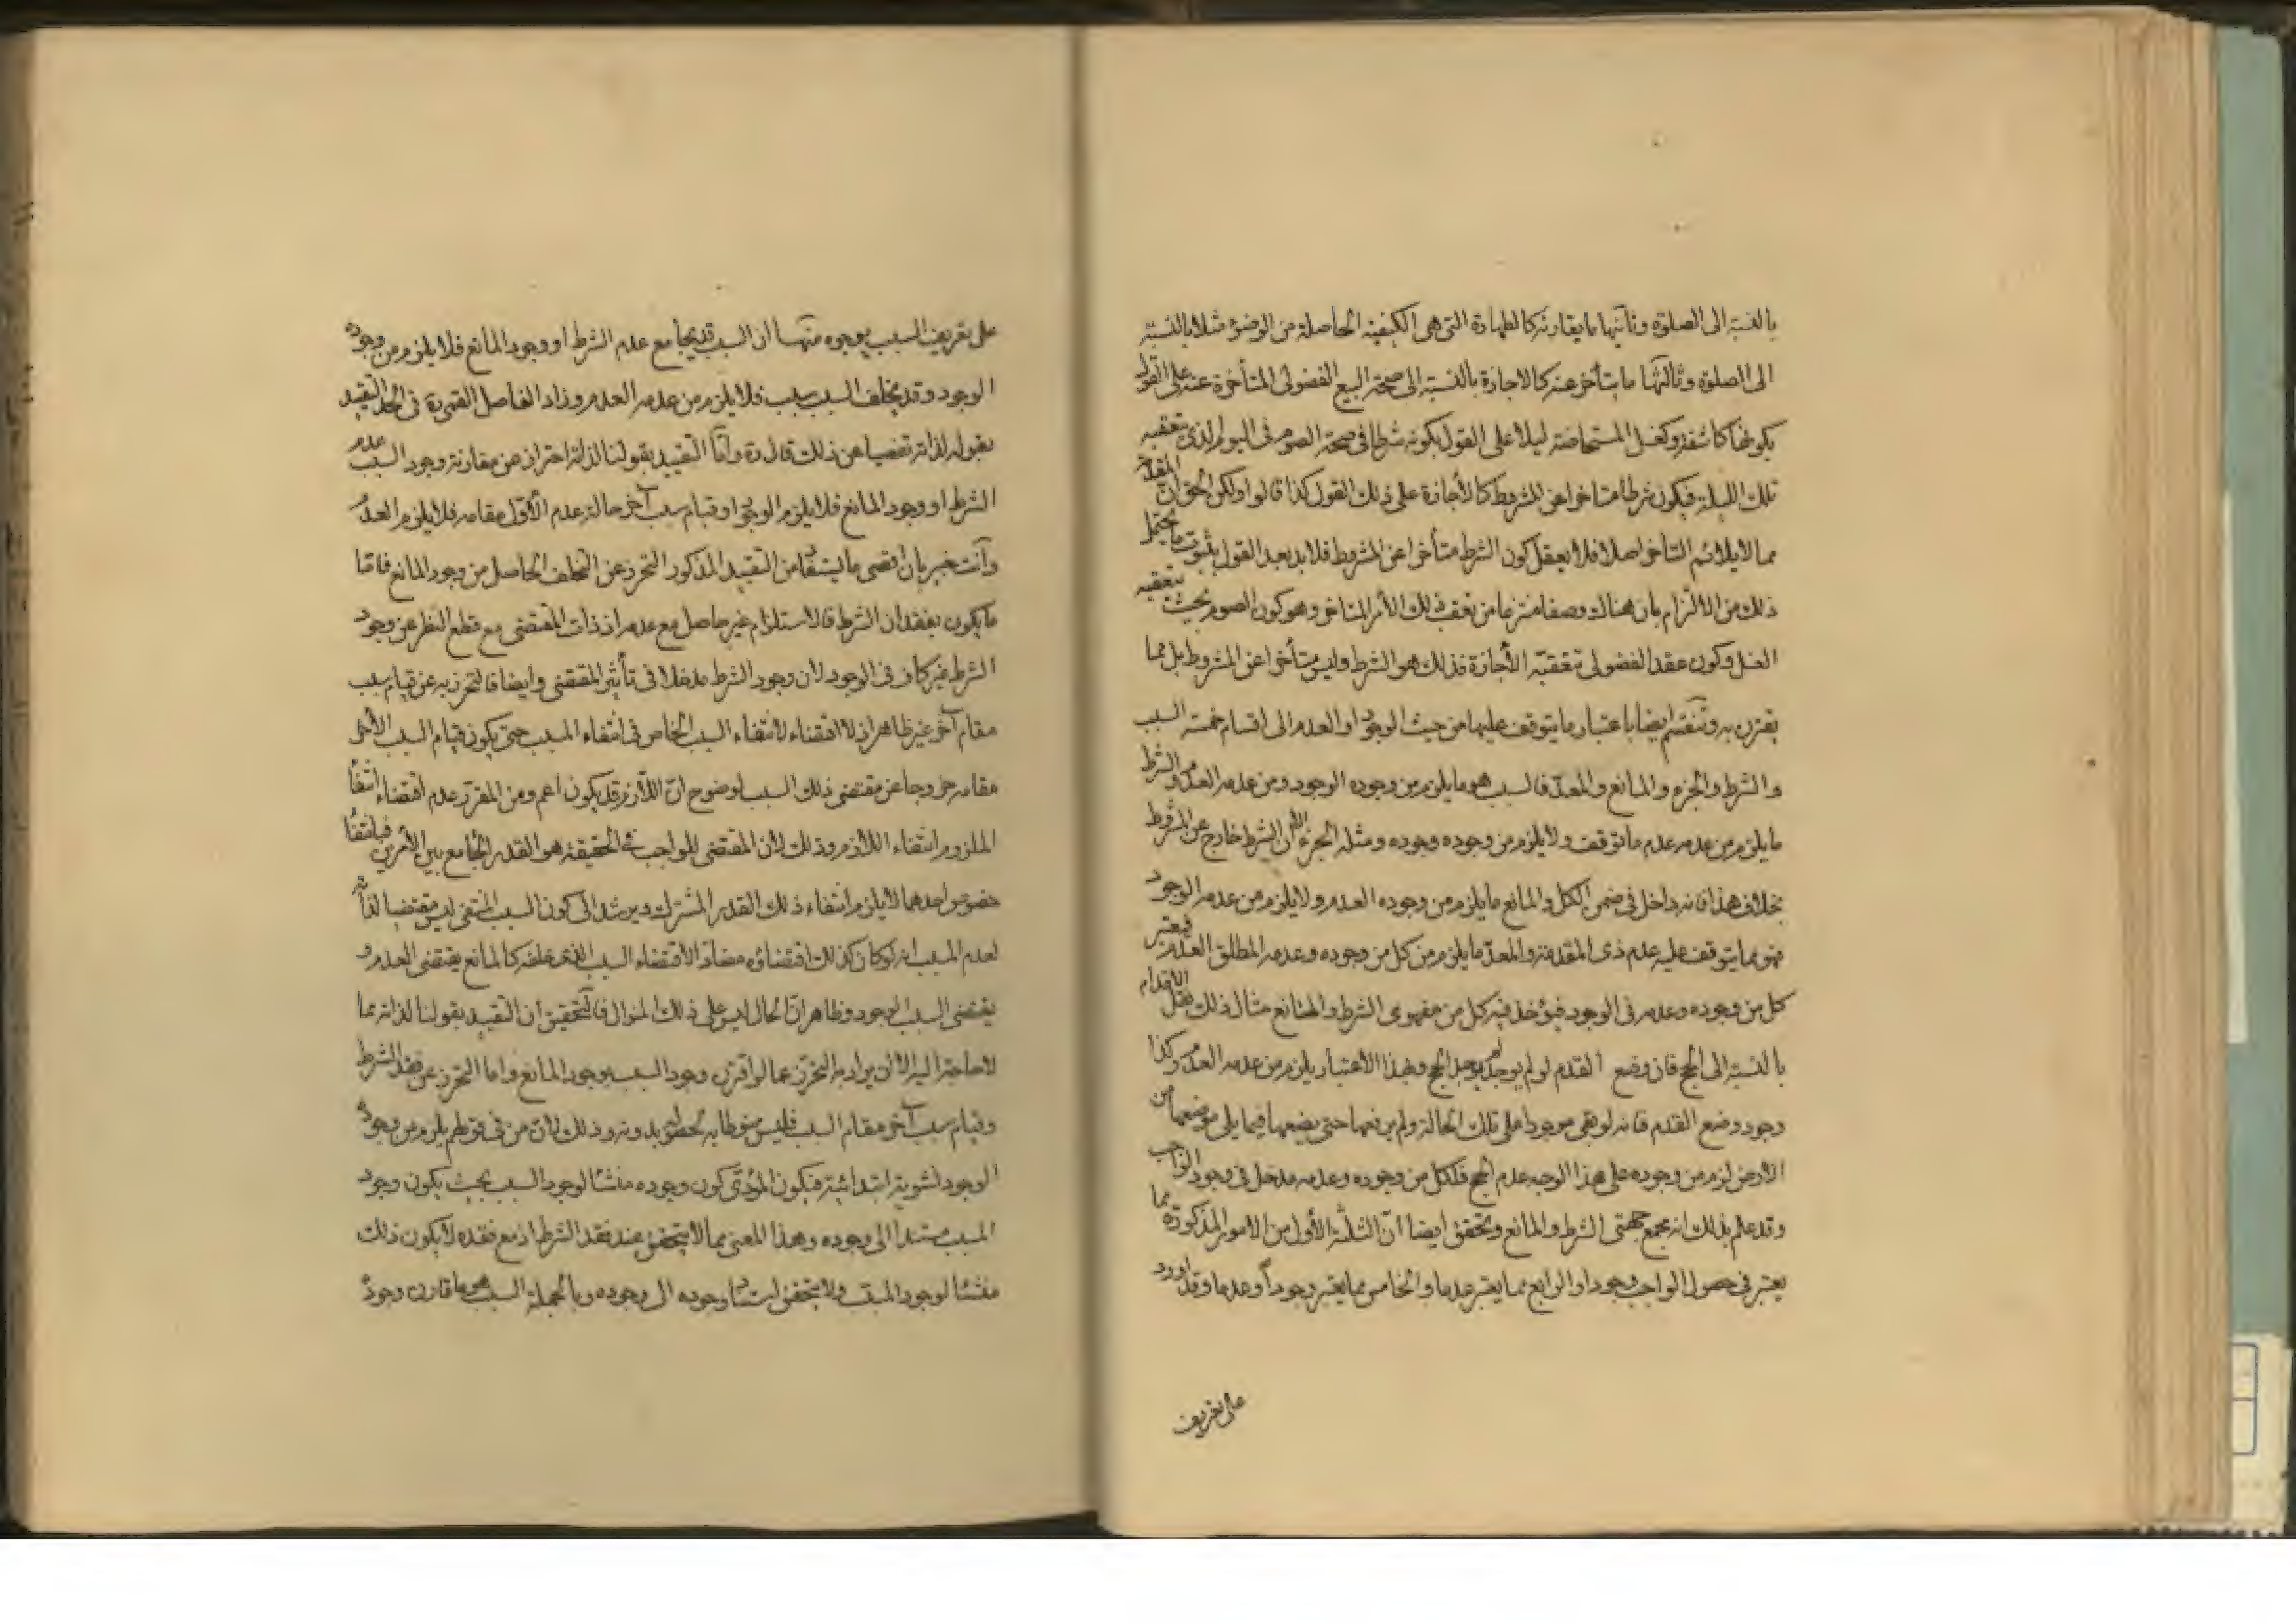 بالنسبة الى الصلوة وثانيها ما يقارنه كالطهارة التى هى الكيفية الحاصلة من الوضوء مثلا بالنسبة
الى الصلوة وثالثها ما يتأخر عنه كالاجازة بالنسبة الى صحة البيع الفضولى المتأخرة عنه على القول
بكونها كاشفة وكغسل المستحاضة ليلا على القول بكونه شرطا فى صحة الصوم فى اليوم الذى تعقبه
تلك الليلة فيكون شرطا متاخرا عن المشروط كالأجازة على ذلك القول كذا قالوا ولكن الحق ان المقدمة
مما لا يلائم التاخر اصلا فلا يعقل كون الشرط متأخرا عن المشروط فلا بد بعد القول بثبوت ما يحتمل
ذلك من الالتزام بان هناك وصفا منتزعا من تعقب ذلك الأمر المتاخر وهو كون الصوم بحيث يتعقبه
الغسل وكون عقد الفضولى تتعقبه الأجازة فذلك هو الشرط وليس متأخرا عن المشروط بل مما
يقترن به وتنقسم ايضا باعتبار ما يتوقف عليها من حيث الوجود او العدم الى اقسام خمسة السبب
والشرط والجزء والمانع والمعد فالسبب هو ما يلزم من وجوده الوجود ومن عدمه العدم والشرط
ما يلزم من عدمه عدم ما توقف ولا يلزم من وجوده وجوده ومثله الجزء الا ان الشرط خارج عن المشروط
بخلاف هذا فانه داخل فى ضمن الكل والمانع ما يلزم من وجوده العدم ولا يلزم من عدمه الوجود
فهو مما يتوقف عليه عدم ذى المقدمة والمعد ما يلزم من كل من وجوده وعدمه المطلق العدم فيعتبر
كل من وجوده وعدمه فى الوجود فيؤخذ فيه كل من مفهومى الشرط والمانع مثال ذلك نقل الاقدام
بالنسبة الى الحج فان وضع القدم لو لم يوجد لم يوجد الحج وبهذا الاعتبار يلزم من عدمه العدم وكذا
وجود وضع القدم فانه لو بقى موجودا على تلك الحالة ولم يرفعها حتى يضعها فيما يلى موضعها من
الأرض لزم من وجوده على هذا الوجه عدم الحج فلكل من وجوده وعدمه مدخل فى وجود الواجب
وقد علم بذلك انه مجمع جهتى الشرط والمانع وتحقق ايضا ان الثلثة الأول من الامور المذكورة مما
يعتبر فى حصول الواجب وجودا والرابع مما يعتبر عدما والخامس مما يعتبر وجوداً وعدما وقد اورد
على تعريف
على تعريف السبب بوجوه منها ان السبب قد يجامع عدم الشرط او وجود المانع فلا يلزم من وجوده
الوجود وقد يخلف السبب سبب فلا يلزم من عدمه العدم وزاد الفاضل القمى ره فى الحد التقييد
بقوله لذاته تفصيا عن ذلك قال ره وانما التقييد بقولنا لذاته احتراز عن مقارنة وجود السبب عدم
الشرط او وجود المانع فلا يلزم الوجود او قيام سبب آخر حالة عدم الأول مقامه فلا يلزم العدم
وأنت خبير بان اقصى ما يستفاد من التقييد المذكور التحرز عن التخلف الحاصل من وجود المانع فاما
ما يكون بفقدان الشرط فالاستلزام غير حاصل مع عدمه اذ ذات المقتضى مع قطع النظر عن وجود
الشرط غير كاف فى الوجود لان وجود الشرط مدخلا فى تأثير المقتضى وايضا فالتحرز به عن قيام سبب
مقام آخر غير ظاهر اذ لا اقتضاء لانتفاء السبب الخاص فى انتفاء المسبب حتى يكون قيام السبب الآخر
مقامه خروجا عن مقتضى ذلك السبب لوضوح ان اللازم قد يكون اعم ومن المقرر عدم اقتضاء انتفاء
الملزوم انتفاء اللازم وذلك لأن المقتضى للواجب فى الحقيقة هو القدر الجامع بين الأمرين فبانتفاء
خصوص احدهما لا يلزم انتفاء ذلك القدر المشترك ويرشد الى كون السبب المنتفى ليس مقتضيا لذاته
لعدم المسبب انه لو كان كذلك اقتضاؤه مضادا لاقتضاء السبب الذى خلفه كالمانع يقتضى العدم و
يقتضى السبب الوجود وظاهر ان الحال ليس على ذلك المنوال فالتحقيق ان التقييد بقولنا لذاته مما
لا حاجة اليه الا ان يراد به التحرز عما لو اقترن وجود السبب بوجود المانع واما التحرز عن فقد الشرط
وقيام سبب آخر مقام السبب فليس منوطا به لحصوله بدونه وذلك لان من فى قولهم يلزم من وجوده
الوجود نشوية ابتدائية فيكون المؤدى كون وجوده منشأ لوجود السبب بحيث يكون وجود
المسبب مستندا الى وجوده وهذا المعنى مما لا يتحقق عند فقد الشرط اذ مع فقده لا يكون ذلك
منشأ لوجود المسبب ولا يتحقق استناد وجوده الى وجوده وبالجملة السبب هو ما قارن وجوده